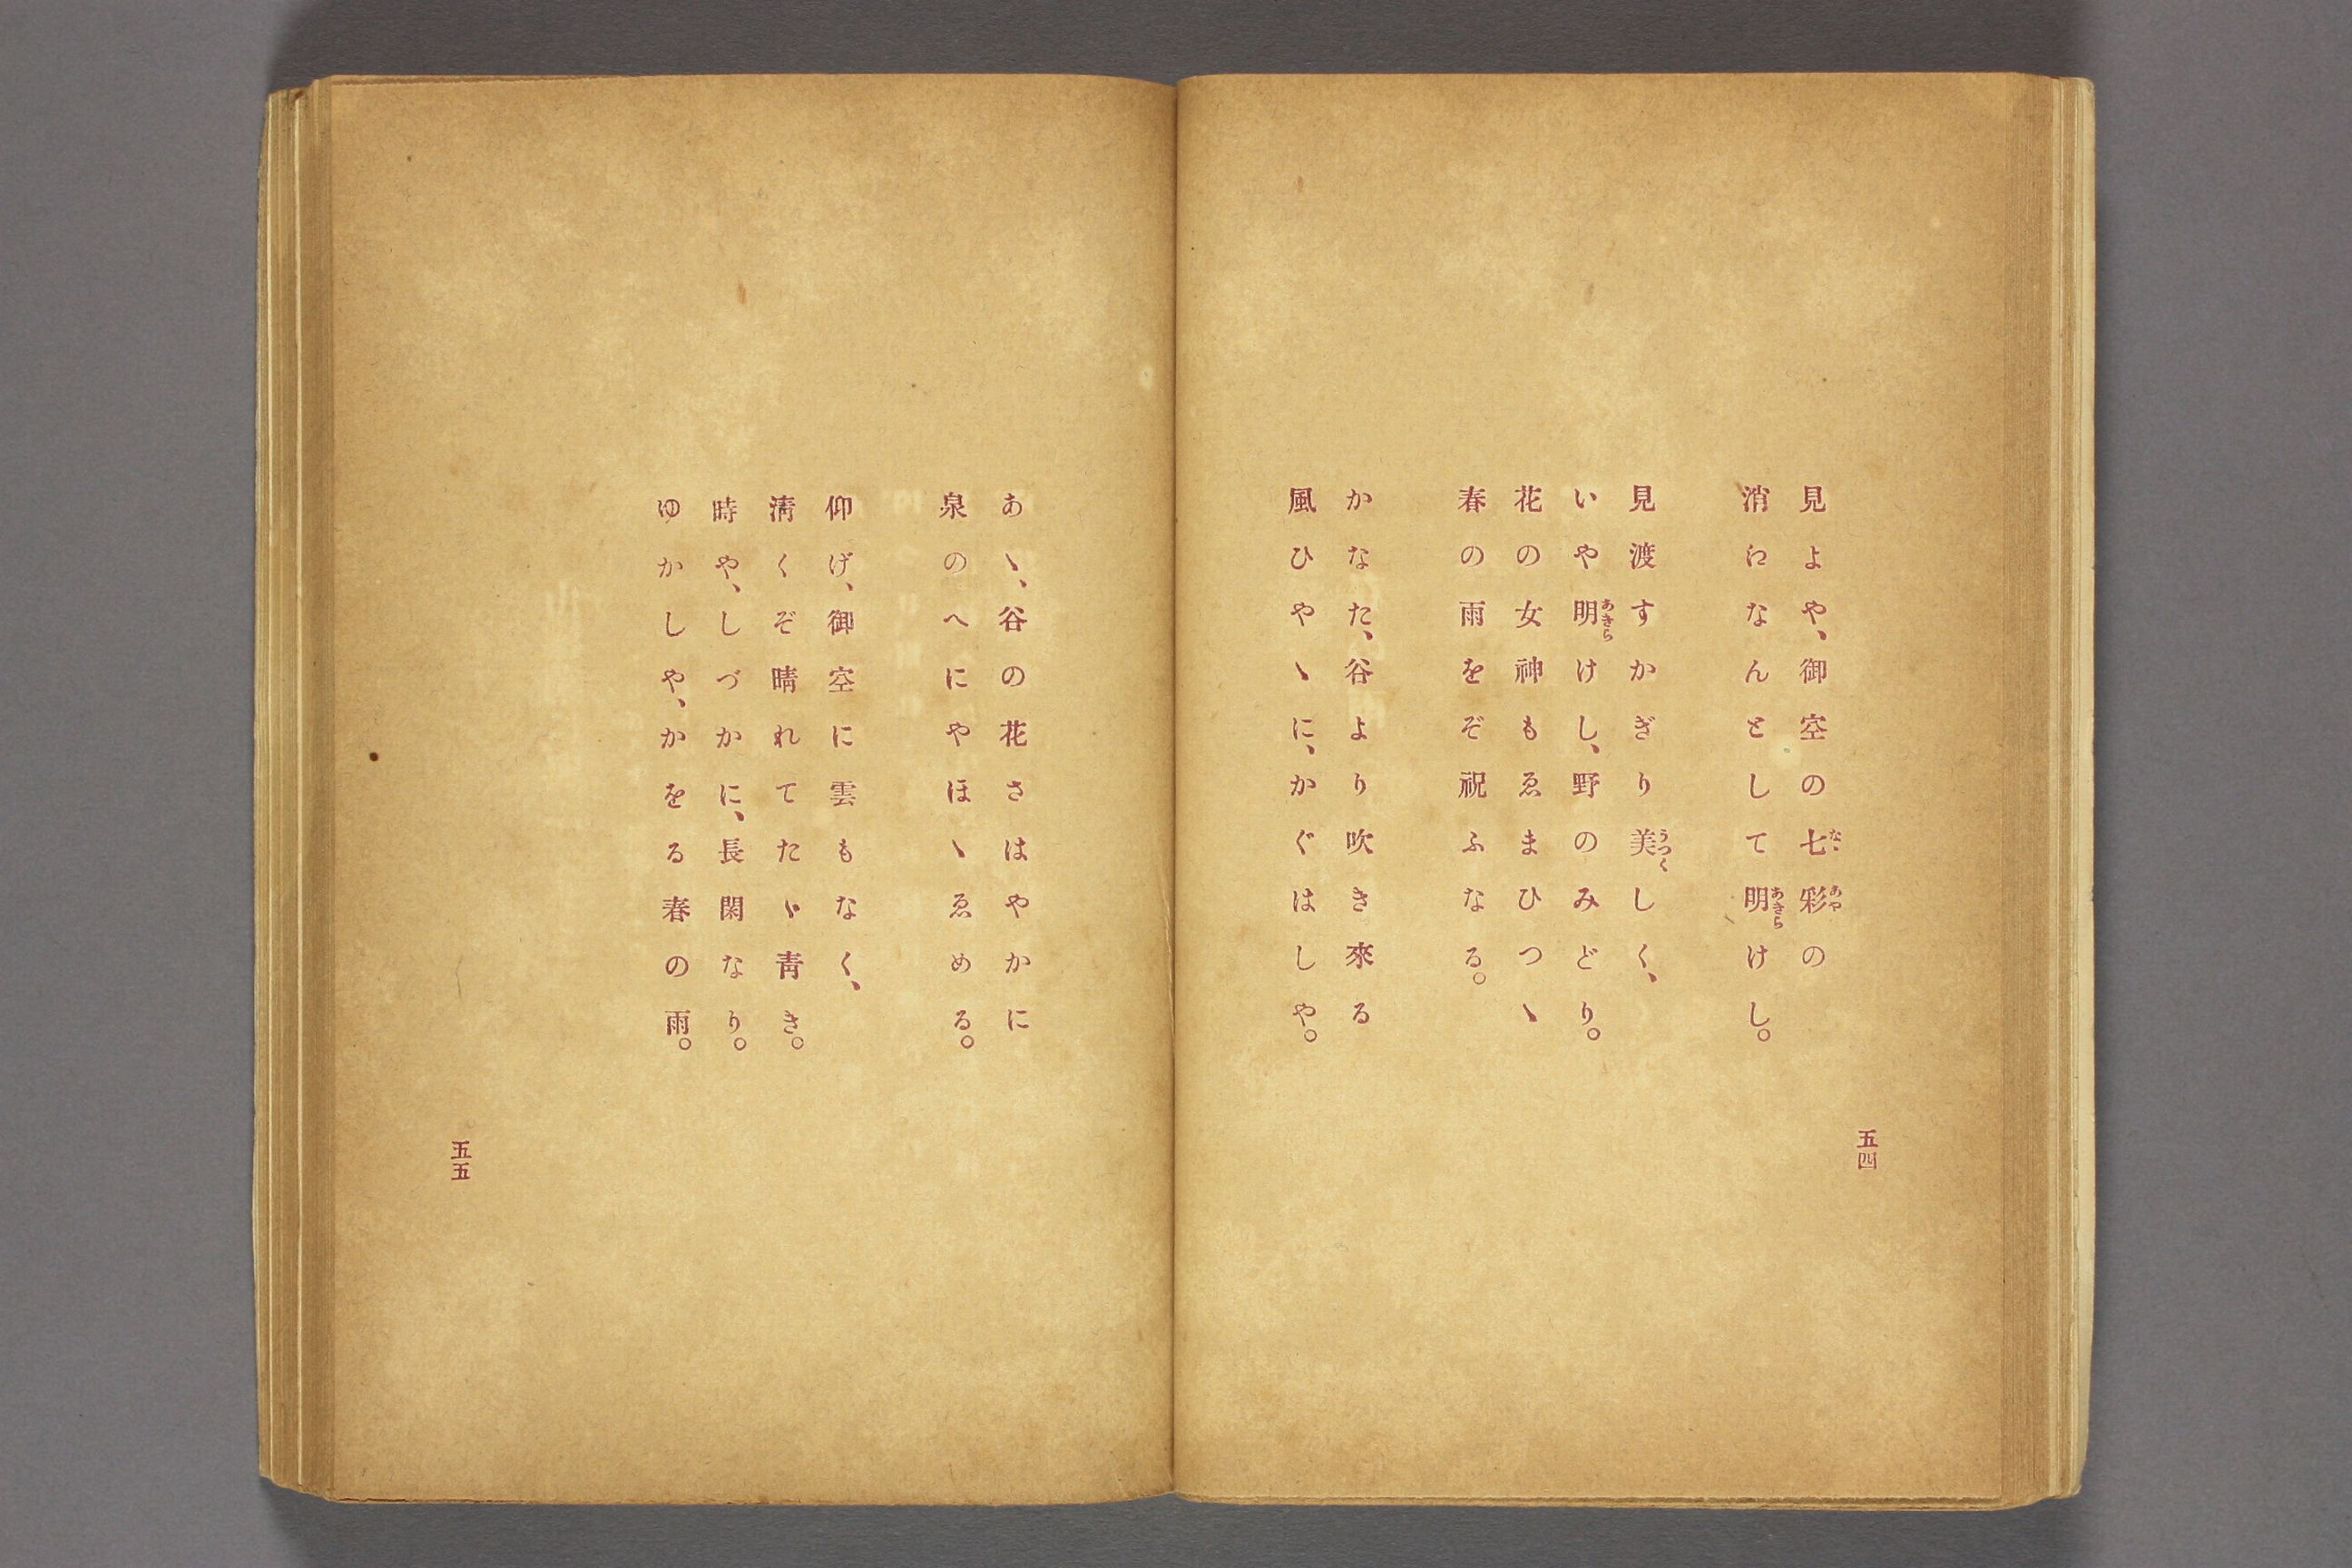 見よや、御空の七彩の
消ɪなんとして明けし。
見渡すかぎり美しく、
いや明けし、野のみどり。
花の女神もゑまひつヽ
春の雨をぞ祝ふなる。
かなた、谷より吹き來る
風ひやヽに、かぐはしや。
五四
あヽ、谷の花さはやかに
泉のへにやほヽゑめる。
仰げ、御空に雲もなく、
淸くぞ晴れてたゞ靑き。
時や、しづかに、長閑なり。
ゆかしや、かをる春の雨。
五五